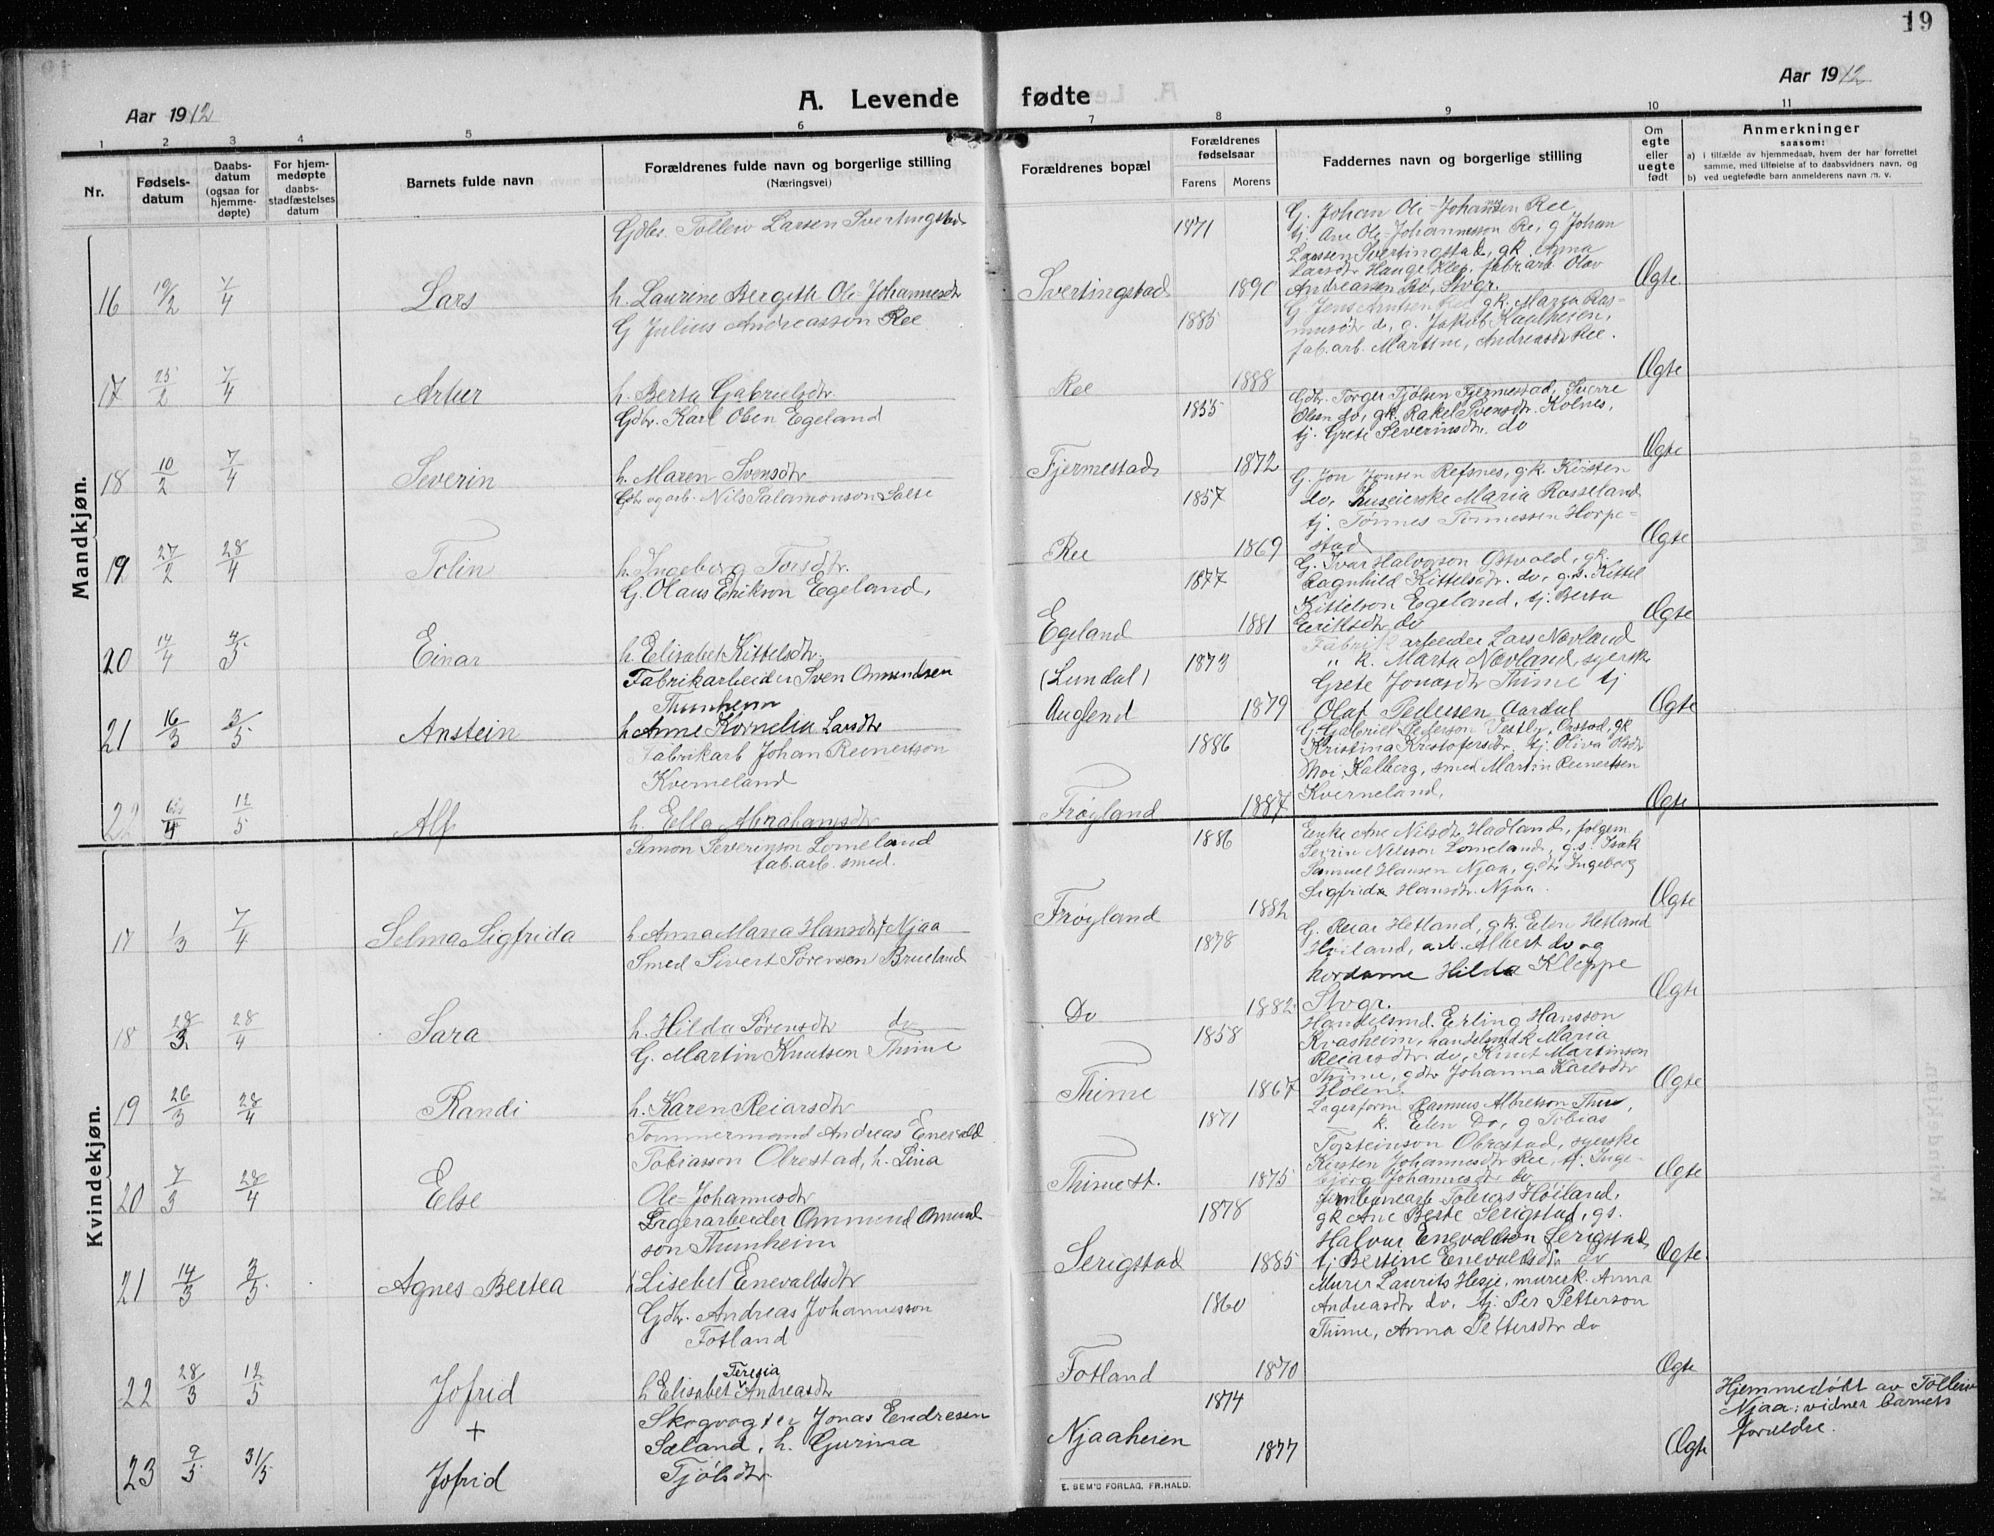 19
Aar 1912
A. Levende
fødte
Aar 1912
1 2 3 4 5 6 7 8 9 10 11
Nr.
Fødsels-
datum
Daabs-
datum
(ogsaa for
hjemme-
døpte)
For hjem-
medøpte
daabs-
stadfæstelses
datum
Barnets fulde navn
Forældrenes fulde navn og borgerlige stilling
(Næringsvei)
Forældrenes bopæl
Forældrenes
fødselsaar
Farens Morens
Faddernes navn og borgerlige stilling
Om
egte
eller
uegte
født
Anmerkninger
saasom:
a) i tilfælde av hjemmedaab, hvem der har forrettet
samme, med tilføielse af to daabsvidners navn, og
b) ved uegtefødte barn anmelderens navn m. v.
Mandkjøn.
16 19/2 7/4 Lars
Gdbr. Tollew Larsen Svertingstad
h. Laurine Bergith Ole-Johannesdtr
Svertingstad 1871 1890
G. Johan Ole-Johannesen Ree
tj. Ane Ole-Johannesson Re, g Johan
Larssen Svertingstad, gk. Anna
Larsdtr Hauge Klep, fabr.arb. Olav
Andreassen Ro, Stvgr.
Ægte
17 25/2 7/4 Artur
G Julius Andreasson Ree
h. Berta Gabrielsdtr.
Ree 1885 1888
G. Jens Arntsen Ree, gk. Maria Ras-
musdtr do, g. Jakob
fab.arb. Martine, Andreasdtr Ree.
Ægte
18 10/2 7/4 Severin
Gdbr. Karl Olsen Egeland
h. Maren Svensdtr
Fjermestad 1855 1872
Gdbr. Torger Tjølsen Fjermestad, Sverre
Olsen do, gk. Rakel Svensdtr. Kolnes,
tj. Grete Severinsdtr. do
Ægte
19 27/2 28/4 Tolin
Gbr og arb. Nils Salamonson Salte
h. Ingeborg Torsdtr.
Ree 1857 1869
G. Jon Jonsen Refsnes, gk. Kirsten
do, huseierske Maria Rosseland
tj. Tønnes Tønnessen Horpe-
stad
Ægte
20 14/4 4/5 Einar
G. Olaus Erikson Egeland,
h. Elisabet Kittelsdtr.
Egeland
(Lundal) 1877 1881
G. Ivar Halvorson Osvald, gk.
Ragnhild Kittelsdtr. do, g.s. Kittel
Kittelson Egeland, tj. Berta
Eriksdtr do
Ægte
21 16/3 3/5 Anstein
Fabrikarbeider Sven Omundsen
Thunheim
h Anne Kornelia Larsdtr
Auglend 1873 1879
Fabrikarbeider Lars Novland
" k. Marta Novland, syersk
Grete Jonasdtr Thime tj
Olaf Pedersen Aardal
Ægte
22 /4 12/5 Alf
Fabrikarb Johan Reinertson
Kverneland
h. Ella Abrahamsdtr
Frøyland 1886 1887
G. Gabriel Pederson Vestly, Orstad, gk
Kristina Kristofersdtr, tj. Oliva Olsdtr
Moi, Kalberg, smed Martin Reinertsen
Kverneland.
Ægte
Kvindekjøn.
17 1/3 7/4 Selma Sigfrida
Simon Severinson Lomeland
fab.arb. smed.
h Anna Maria Hansdtr Njaa
Frøyland 1886 1882
Enke Ane Nilsdtr Hadland, folgem.
Seirin Nilsson Lomeland, g.s. Isak
Samuel Hansen Njaa, g.dtr Ingeborg
Sigfrida Hansdtr. Njaa.
Ægte
18 28/3 28/4 Sara
Smed Sivert Sørensen Brueland
h. Hilda Sørensdtr do
Do 1878 1882
G. Reiar Hetland, gk. Elen Hetland
Høiland, arb. Albert do og
hordame Hilda Kleppe
Stvgr.
Ægte
19 26/3 28/4 Randi
G. Martin Knutsen Thime
h. Karen Reiarsdtr
Thime 1858 1867
Handelsmd. Erling Hansson
Kvasheim, handelsmdk Maria
Reiarsdtr do, Knut Martinson
Thime, gdtr Johanna Karlsdtr
Holen.
Ægte
20 7/3 28/4 Else
Tømmermand Andreas Enevald
Tobiasson Obrestad, h. Lina
Ole-Johannesdtr
Thime st. 1871 1875
Lagerform Rasmus Albretson Thime,
k. Elen Do, g Tobias
Torsteinson Obrestad, syerske
Kirsten Johannesdtr Ree, tj. Inge-
bjørg Johannesdtr do
Ægte
21 14/3 3/5 Agnes Bertea
Lagerarbeider Ommund Omund
son Thunheim
h Lisebet Enevaldsdtr
Serigstad 1878 1885
Jernbanearb Tobias Høiland,
gk Ane Berte Serigstad, gs.
Halvar Enevaldson Serigstad,
tj. Bertine Enevaldsdtr do
Ægte
22 28/3 12/5 Jofrid
Gdbr. Andreas Johannesson
Fotland
h Elisabet Teresia Andreasdtr
Fotland 1860 1870
Murer Laurits Hesje, murerk. Anna
Andreasdtr do, tj. Per Petterson
Thime, Anna Pettersdtr do
Ægte
+
23 9/5 31/5 Jofrid
Skogvogter Jonas Endresen
Sæland, h. Gurina
Tjølsdtr.
Njaaheien 1874 1877
Ægte
Hjemmedøbt av Tolleiv
Njaa; vidner barnets
forældre.
E. SEM'S FORLAG, FR.HALD.